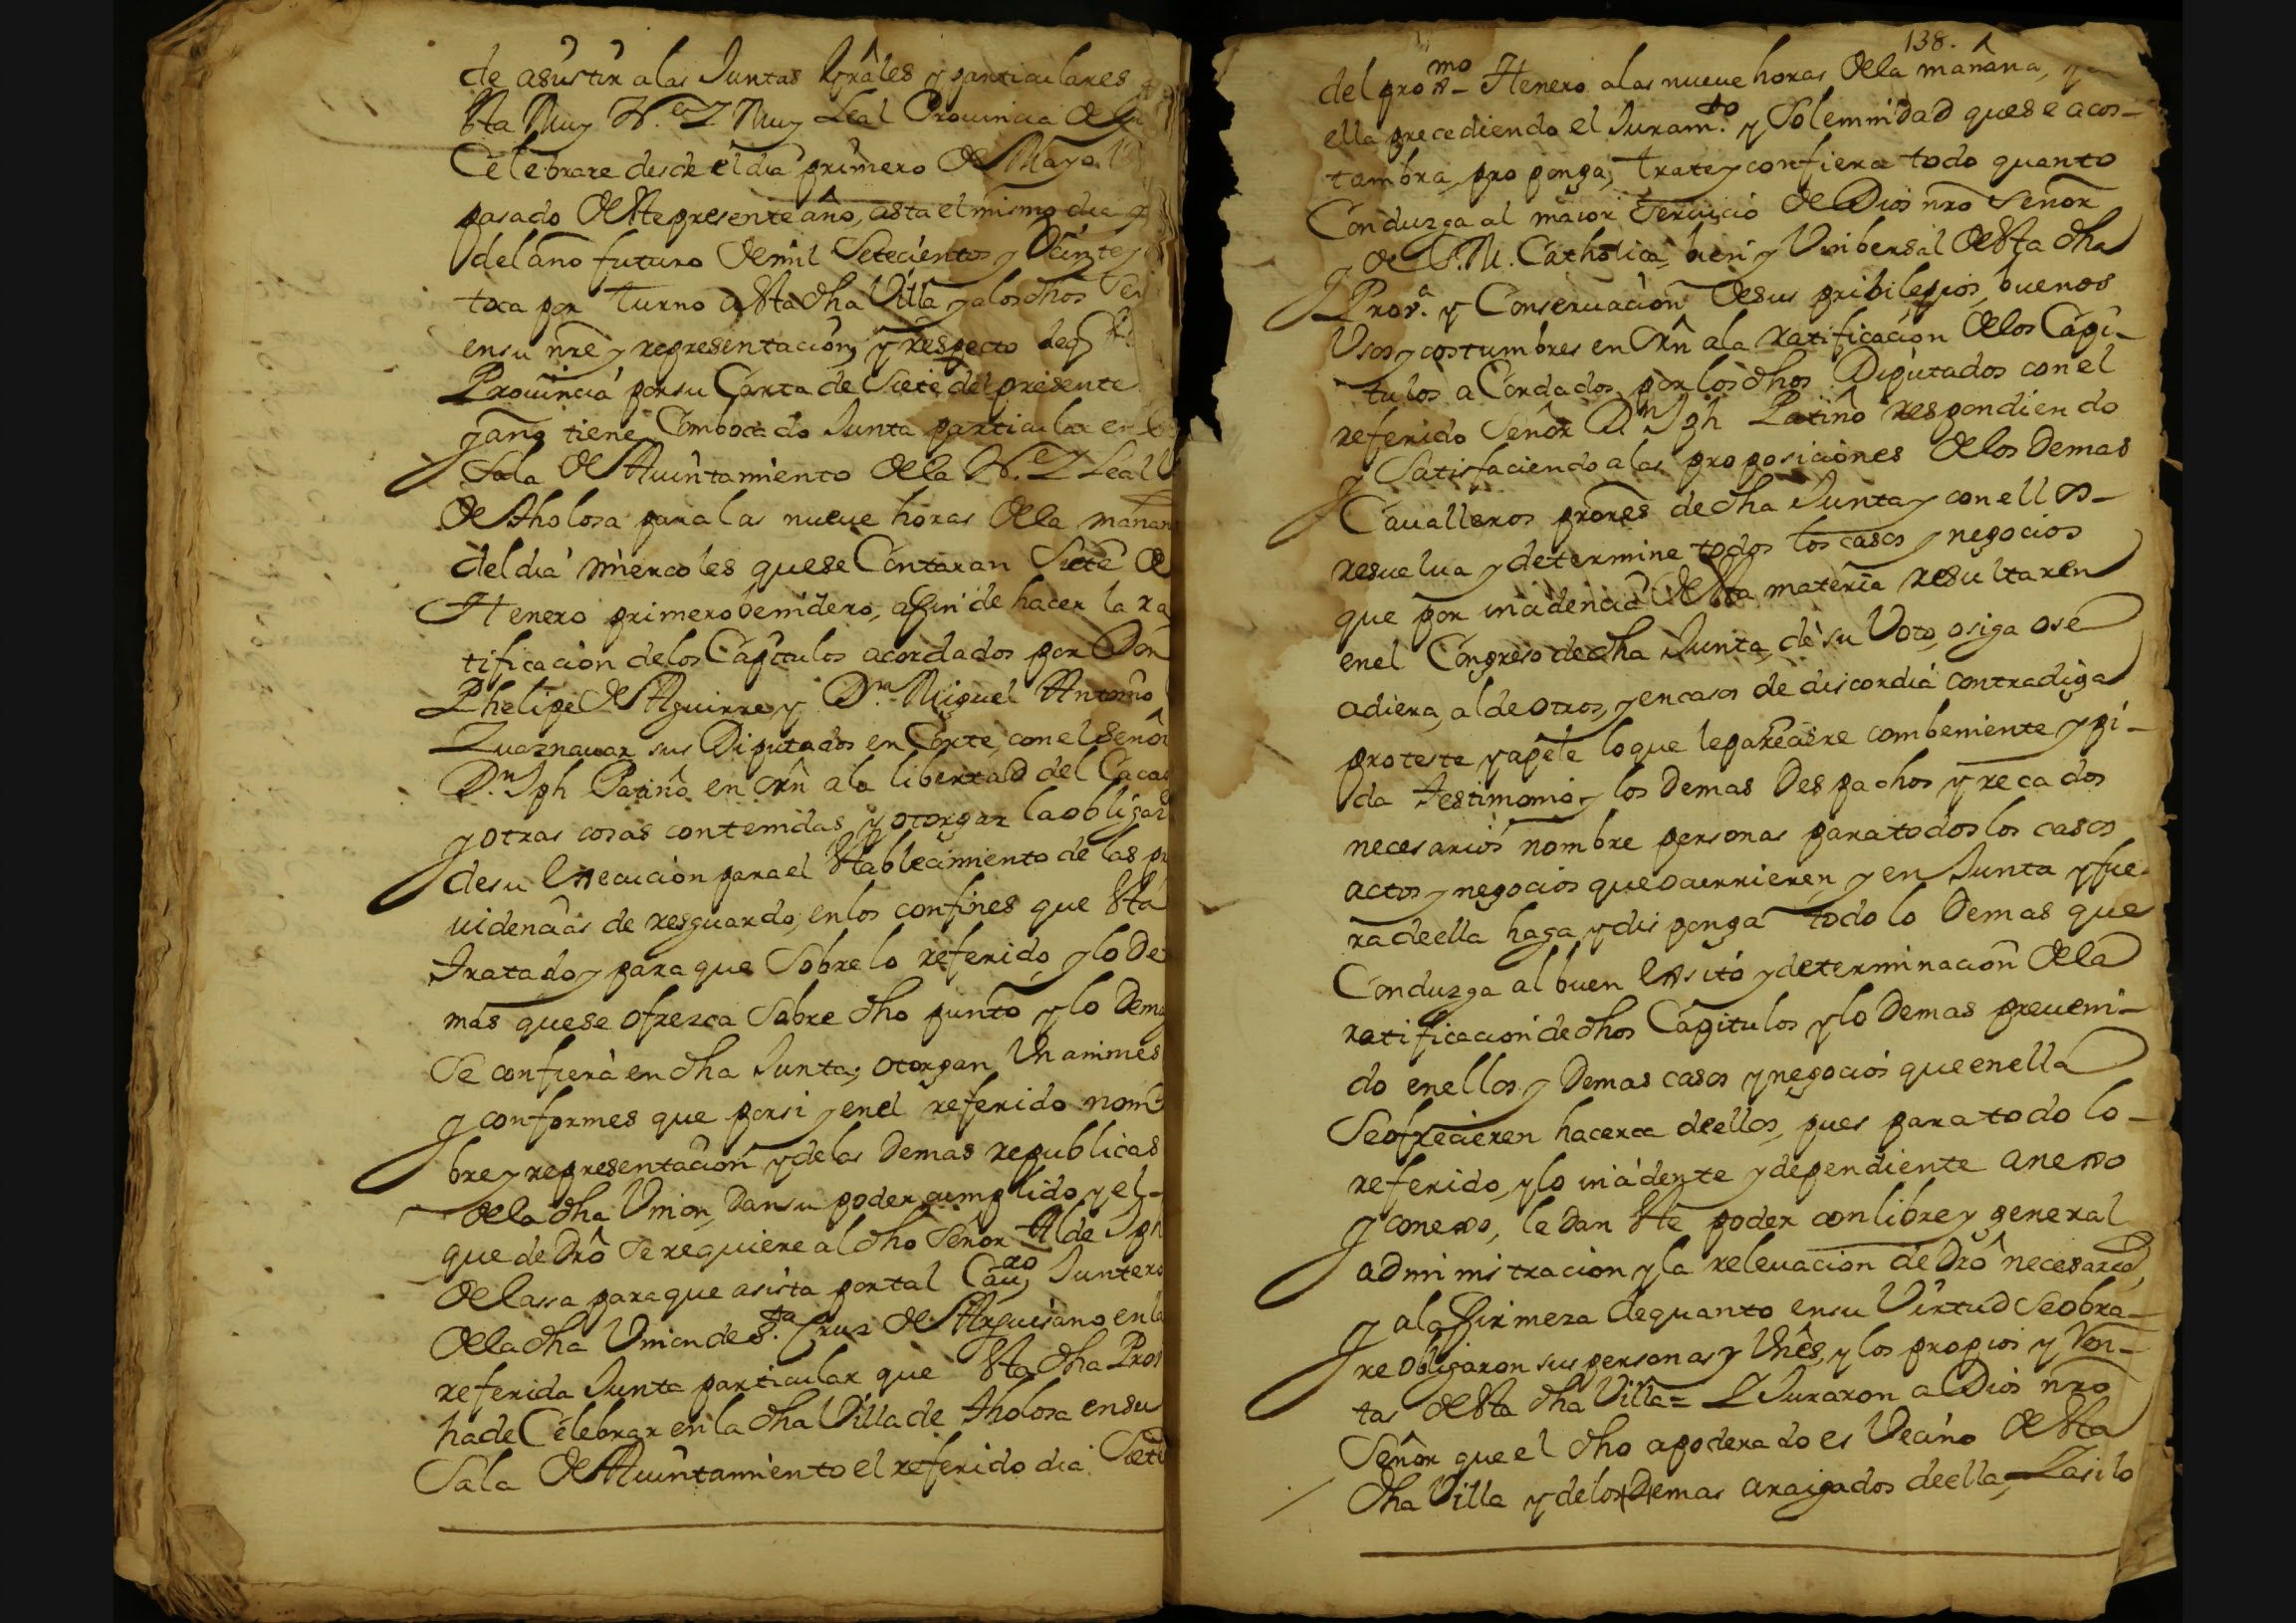 de asistir a las Juntas Grâles y particulares q
esta Muy N. e Y. Muy Leal Provincia de Gu
Celebrare desde el dia primero de Mayo
pasado de este presente año, asta el mismo dia
del año futuro de mil Setecientos y Veinte y
toca por turno a esta dha Villa y a los dhos
en su nre y representacion, y respecto de q
Provincia por su Carta de Siete del presente
y año tiene Combocado Junta particular en
Sala de Aiuntamiento de la N. e Y Leal
de tholosa para las nueve horas de la mañana
del dia miercoles que se Contaran Siete de
Henero primero benidero, a fin de hacer la ra
tificacion de los Capitulos acordados por Don
Phelipe de Aguirre y Dn. Miguel Antonio
Zuaznavar sus Diputados en Corte, con el Señor
Dn. Jph Patiño en orn a la libertad del Cacao
y otras cosas contenidas y otorgar la obligaz
de su execucion para el establecimiento de las pr
videncias de resguardo, en los confines que esta
tratado y para que Sobre lo referido, y lo De
más que se ofrezca Sobre dho punto y lo Demas
Se confiera en dha Junta; otorgan Unanimes
y conformes que por si y en el referido nom
bre y representacion y de las Demas republicas
de la dha Union, Dan su poder cumplido, y el
que de Drô Se requiere al dho Señor Alde Jph
de lassa para que asista por tal Cauro Juntero
de la dha Union de S.ta Cruz de Arguisano en la
referida Junta particular que esta dha Prov
ha de Celebrar en la dha Villa de tholosa en su
Sala de Aiuntamiento el referido dia Siete
138.
del proxmo Henero a las nueve horas de la mañana, y en
ella precediendo el Juram.to y Solemnidad que se acos-
tumbra, proponga, trate y confiera todo quanto
Conduzga al maior Servicio de Dios nrô Señor
y de S. M. Catholica, bien y Unibersal de esta dha
Prov.a y Conservacion de sus pribilegios, buenos
Usos y costumbres en orn a la ratificacion de los Capi-
tulos aCordados por los dhos Diputados con el
referido Señor Dn Jph Patiño respondiendo
y Satisfaciendo a las proposiciones de los Demas
Cavalleros prores de dha Junta y con ellos-
resuelva y determine todos los casos y negocios
que por incidencia de esta materia resultaren
en el Congreso de dha Junta, dè su Voto, o siga o se
adiera, al de otros, y en casos de discordia contradiga
proteste y apele lo que le pareciere combeniente y pi-
da testimonio y los Demas Despachos y recados
necesarios nombre personas para todos los casos
actos y negocios que ocurrieren, y en Junta y fue-
ra de ella haga y disponga todo lo Demas que
Conduzga al buen exsito y determinacion de la
ratificacion de dhos Capitulos y lo Demas preveni-
do en ellos y Demas casos y negocios que en ella
Se ofrecieren hacerca de ellos, pues para todo lo-
referido, y lo incidente y dependiente anexo
y conexo, le Dan este poder con libre y general
administracion y la relevacion de Drô necesario,
y a la firmeza de quanto en su Virtud Se obra-
re obligaron sus personas y Vnês, y los propios y Ren-
tas de esta dha Villa = Y Juraron a Dios nro
Señor que el dho apoderado es Vecino de esta
dha Villa y de los Demas araigados de ella, Y asi lo